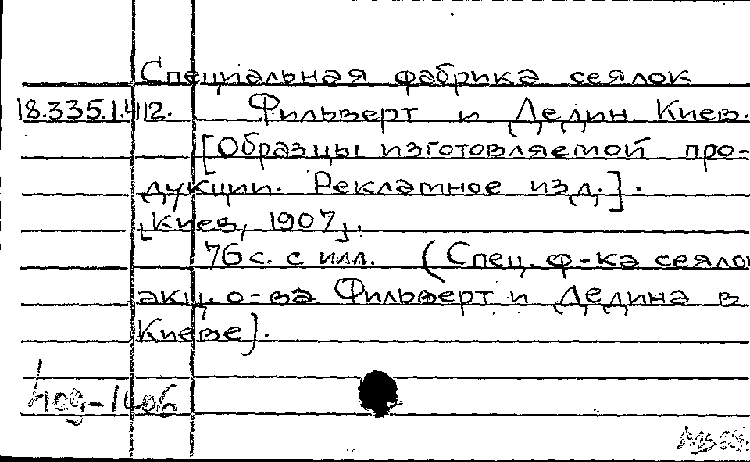 Специальная фабрика сеялок
18.335.1.412. Фильверт и Дедин Киев.
[Образцы изготовляемой про-
дукции. Рекламное изд.].
[Киев, 1907].
76 с. с илл. (Спец. ф-ка сеялок
акц. о-ва Фильверт и Дедина в
Киеве].